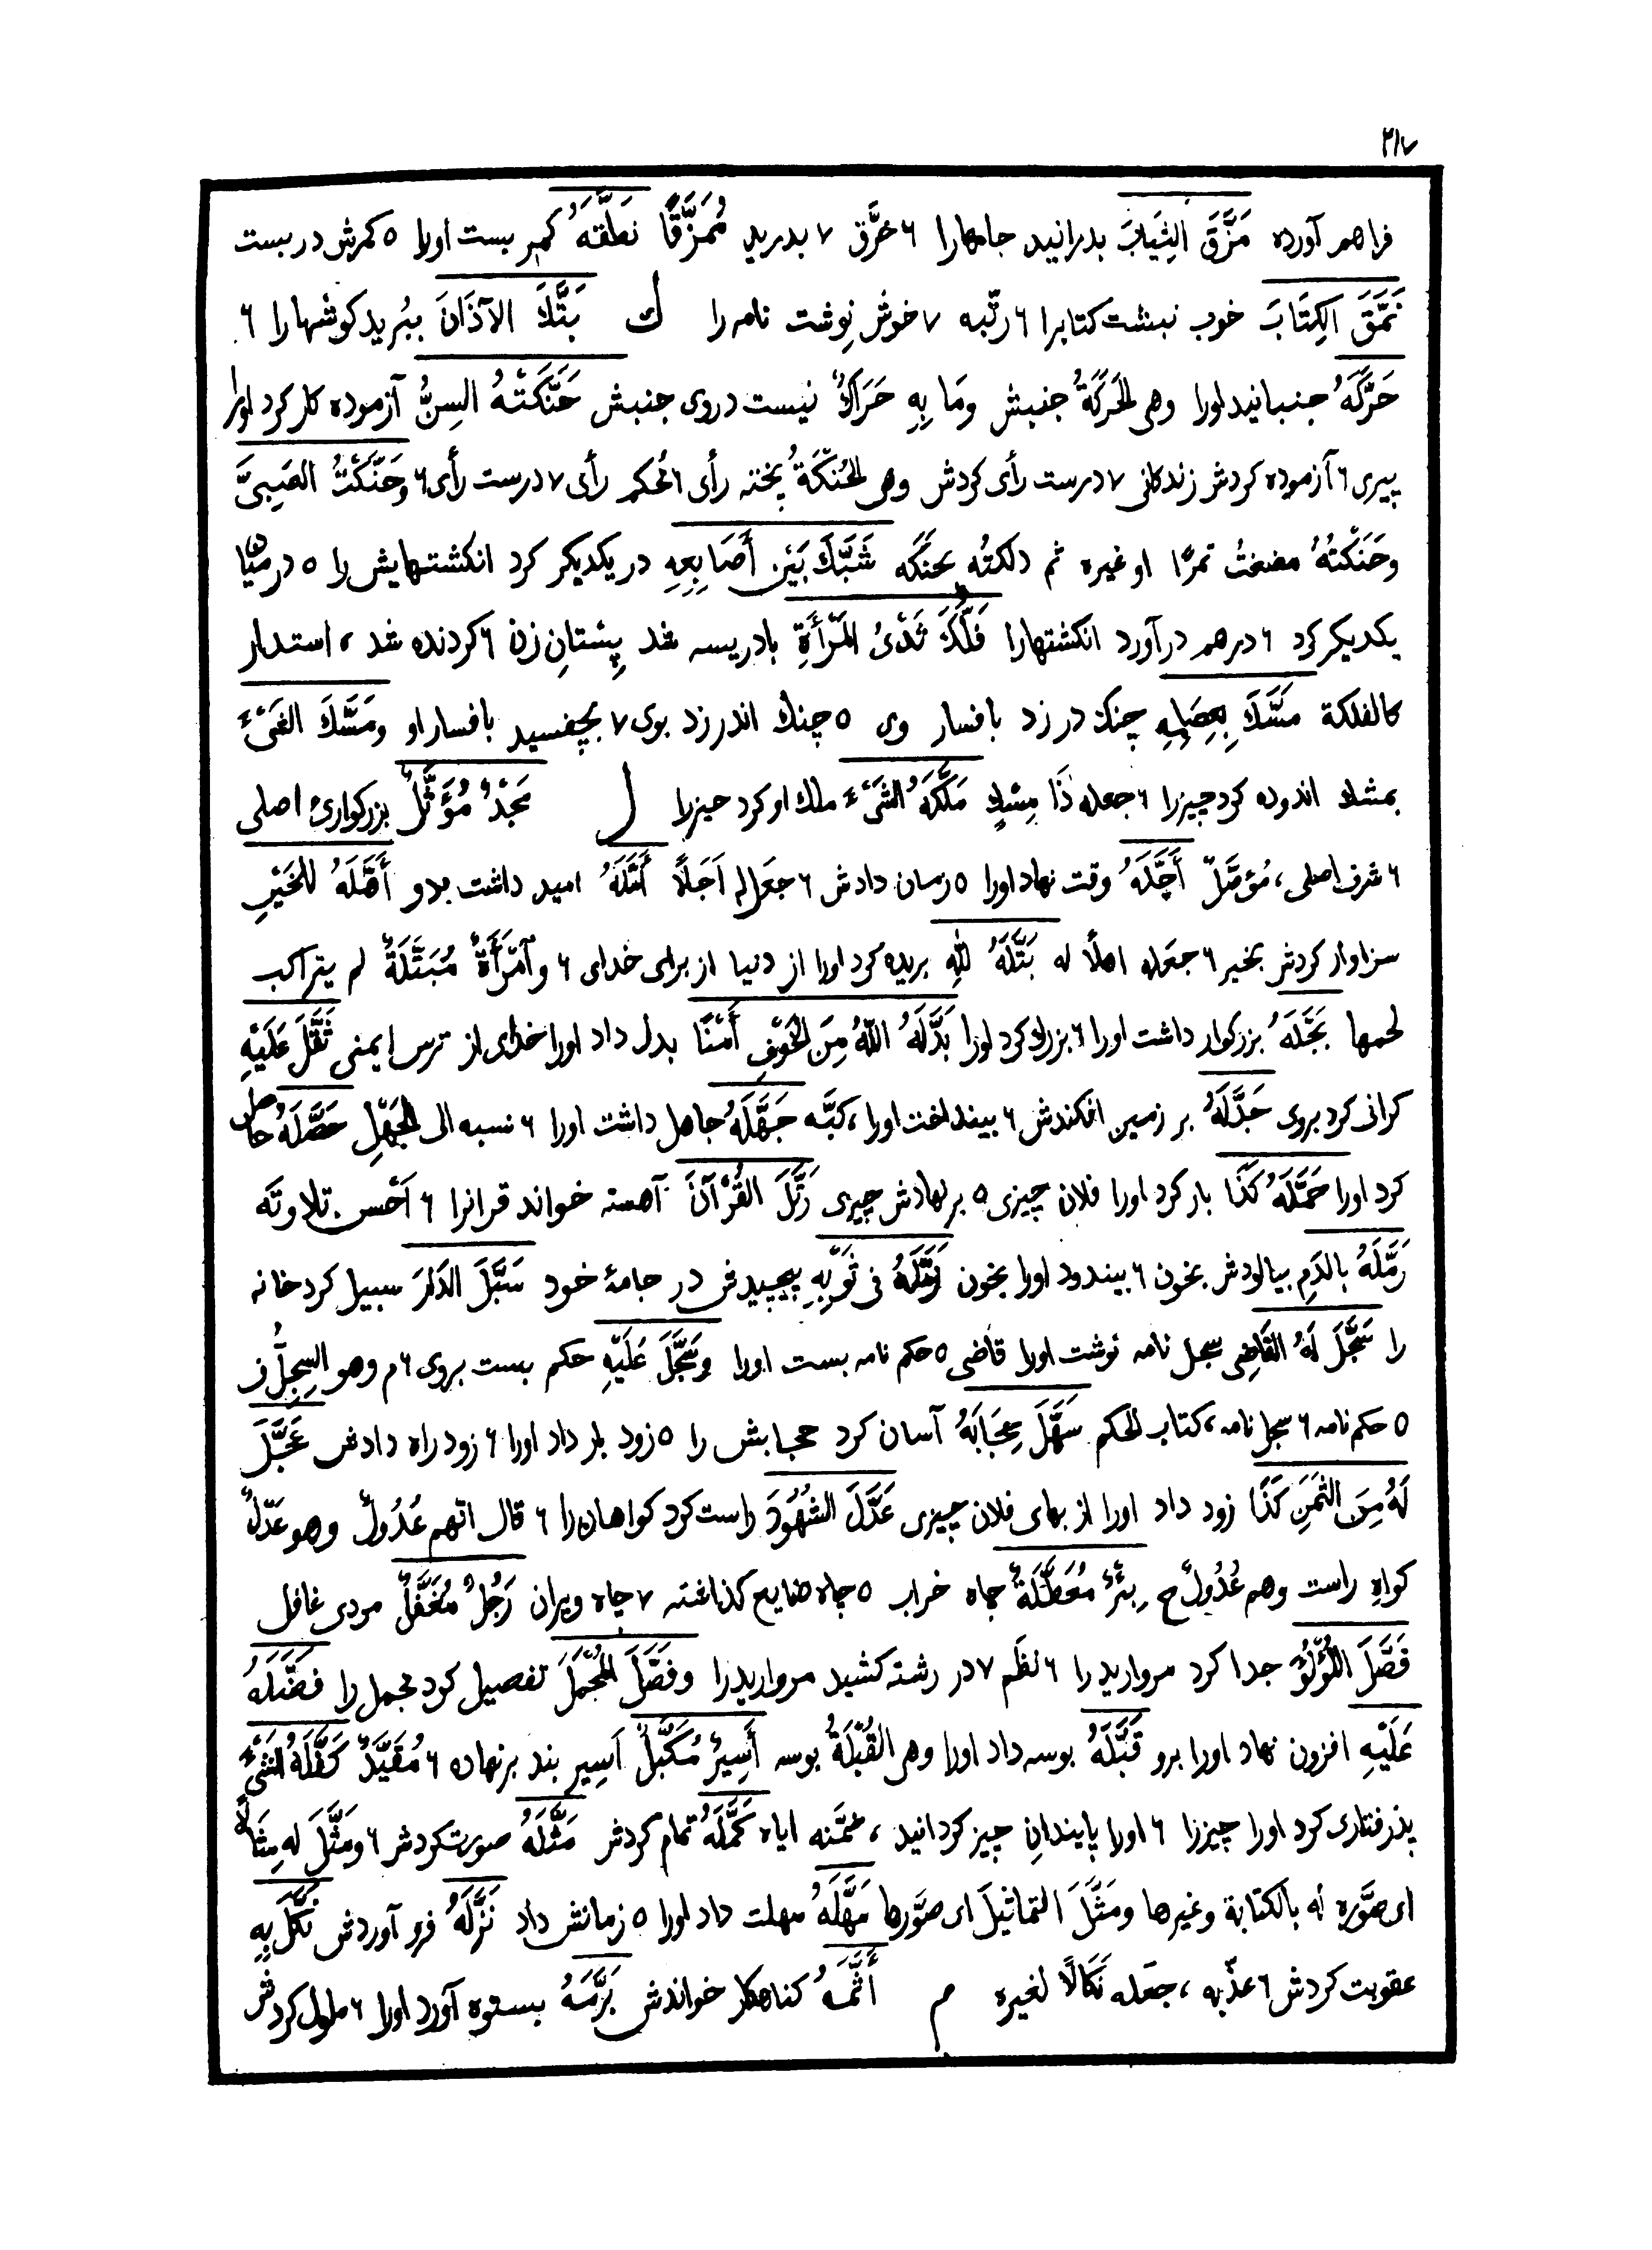 ٢١٧
فراهم آورده مَزَّقَ الثِيَابَ بدرانید جامهارا ٦ خرَّق ٧ بدرید مُمَزَّقًا نَطَّقَهُ کمر بست اورا ٥ کمرش در بست
نَمَّقَ الكِتَابَ خوب نبشت کتابرا ٦ رتّبه ٧ خوش نِوشت نامه را ك بَتَّكَ الآذَانَ ببُرید کوشهارا ٦
حَرَّكَهُ جنبانید اورا وهی الحَرَكَةُ جنبش وَمَا بِهِ حَرَاكٌ نیست دروی جنبش حَنَّكَتْهُ السِنُّ آزموده کار کرد اورا
پیری ٦ آزموده کردش زندکانی ٧ درست رأی کردش وهی الحُنْكَةُ پخته رأی ٦ مُحکم رأی ٧ درست رأی ٦ وحَنَّكْتُ الصَبِیَّ
وحَنَكْتُهُ مضغتُ تمرًا او غیره ثم دلکتُه بحنَكه شَبَّكَ بَيْنَ أَصَابِعِهِ در یکدیکر کرد انکشتهایش را ٥ در میان
یکدیکر کرد ٦ درهم درآورد انکشتهارا فَلَّكَ ثَدْىُ المَرْأَةِ بادریسه شد پِستانِ زن ٦ کردنده شد ، استدار
کالفلکة مَسَّكَ بِعِصَامِهِ چنک در زد بافسار وی ٥ چنك اندر زد بوی ٧ بچفسید بافسار او ومَسَّكَ الشَىْءَ
بمشك اندوده کرد چیزرا ٦ جعله ذَا مِسْكٍ مَلَّكَهُ الشَىْءَ ملك او کرد چیزرا ل مَجْدٌ مُؤَثَّلٌ بزرکواریُ اصلی
٦ شرف اصلی ، مُؤصَّلٌ أَجَّلَهُ وقت نهاد اورا ٥ زمان دادش ٦ جعَل له اَجَلًا أَمَّلَهُ امید داشت بدو أَهَّلَهُ للخَيْرِ
سزاوار کردش بخیر ٦ جعله اهلًا له بَتَّلَهُ للهِ بریده کرد اورا از دنیا از برای خدای ٦ وٱمْرَأَةٌ مُبَتَّلَةٌ لم یتراکب
لحمها بَجَّلَهُ بزرکوار داشت اورا ٦ بزرك کرد اورا بَدَّلَهُ اللّٰهُ مِنَ الخَوْفِ أَمْنًا بدل داد اورا خدای از ترس ایمنی ثَقَّلَ عَلَيْهِ
کرانی کرد بروی جَدَّلَهُ بر زمین افکندش ٦ بینداخت اورا ، کبَّه جَهَّلَهُ جاهل داشت اورا ٦ نسبه الی الجَهْلِ حَصَّلَهُ حاصل
کرد اورا حَمَّلَهُ كَذَا بار کرد اورا فلان چیزی ٥ برنهادش چیزی رَتَّلَ القُرْآنَ آهسته خواند قرانرا ٦ اَحْسن تلاوتَه
رَمَّلَهُ بالدَمِ بیالودش بخون ٦ بیندود اورا بخون زَمَّلَهُ فى ثَوْبِهِ بپیچیدش در جامهٔ خود سَبَّلَ الدَارَ سبیل کرد خانه
را سَجَّلَ لَهُ القَاضِى سجل نامه نوشت اورا قاضی ٥ حکم نامه بست اورا وسَجَّلَ عَلَيْهِ حکم بست بروی ٦ م وهو السِجِلُّ ف
٥ حکم نامه ٦ سجل نامه ، کتاب الحکم سَهَّلَ حِجَابَهُ آسان کرد حجابش را ٥ زود بار داد اورا ٦ زود راه دادش عَجَّلَ
لَهُ مِنَ الثَمَنِ كَذَا زود داد اورا از بهای فلان چیزی عَدَّلَ الشُهُودَ راست کرد کواهان را ٦ قال انّهم عُدُولٌ وهو عَدْلٌ
کواهِ راست وهم عُدُولٌ ج بِئْرٌ مُعَطَّلَةٌ چاه خراب ٥ چاه ضایع کذاشته ٧ چاه ویران رَجُلٌ مُغَفَّلٌ مردی غافل
فَصَّلَ اللُؤْلُؤَ جدا کرد مروارید را ٦ نظَم ٧ در رشته کشید مرواریدرا وفَصَّلَ المُجْمَلَ تفصیل کرد مجمل را فَضَّلَهُ
عَلَيْهِ افزون نهاد اورا برو قَبَّلَهُ بوسه داد اورا وهی القُبْلَةُ بوسه أَسِيرٌ مُكَبَّلٌ اَسیر بند برنهاده ٦ مُقَيَّدٌ كَفَّلَهُ الشَىْءَ
پذرفتاری کرد اورا چیزرا ٦ اورا پایندانِ چیز کردانید ، ضمَّنه ایاه كَمَّلَهُ تمام کردش مَثَّلَهُ صورت کردش ٦ ومَثَّلَ له مِثَالًا
ای صوَّره له بالکتابة وغیرها ومَثَّلَ التماثیلَ ای صوَّرها مَهَّلَهُ مهلت داد اورا ٥ زمانش داد نَزَّلَهُ فرو آوردش نَكَّلَ بِهِ
عقوبت کردش ٦ عذّبه ، جعَله نَكَالًا لغیره م أَثَّمَهُ کناهکار خواندش بَرَّمَهُ بستوه آورد اورا ٦ ملول کردش